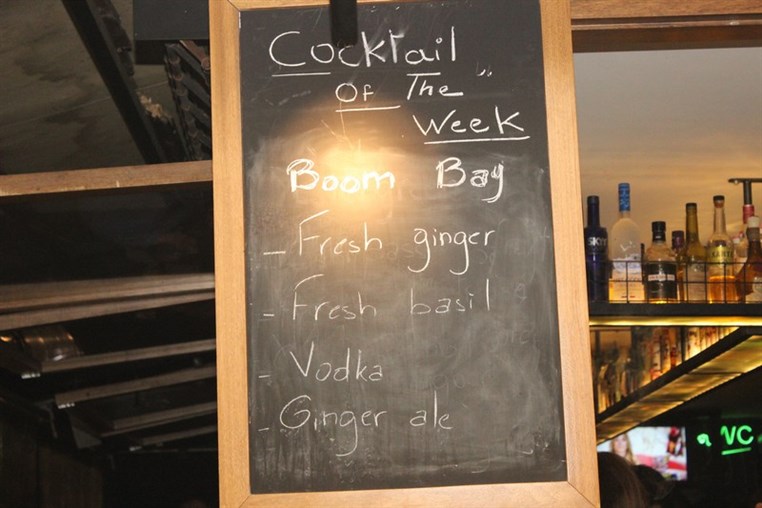 Cocktail
OF The
Week
Boom Bag
- Fresh ginger
- Fresh basil
- Vodka
- Ginger ale
SKYY
WC